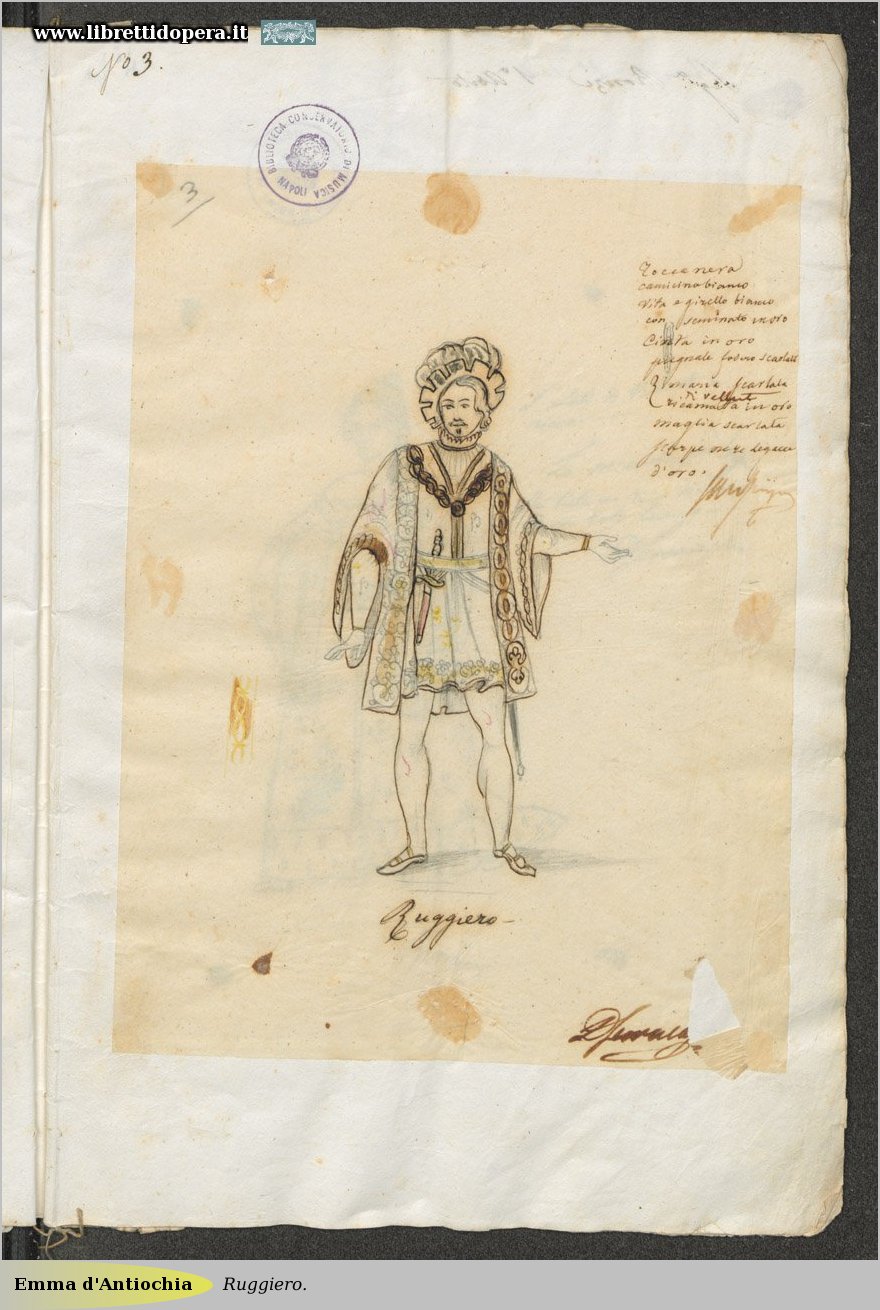 www.librettidopera.it
Nº 3.
BIBLIOTECA CONSERVATORIO DI MUSICA
NAPOLI
3
Tocca nera
camicino bianco
Vita e girello bianco
con seminato in oro
Cinta in oro
pugnale fodero scarlatt
Zimarra scarlata
di vellut
ricamata in oro
maglia scarlata
scarpe nere legacce
d'oro.
Ruggiero
Emma d'Antiochia Ruggiero.